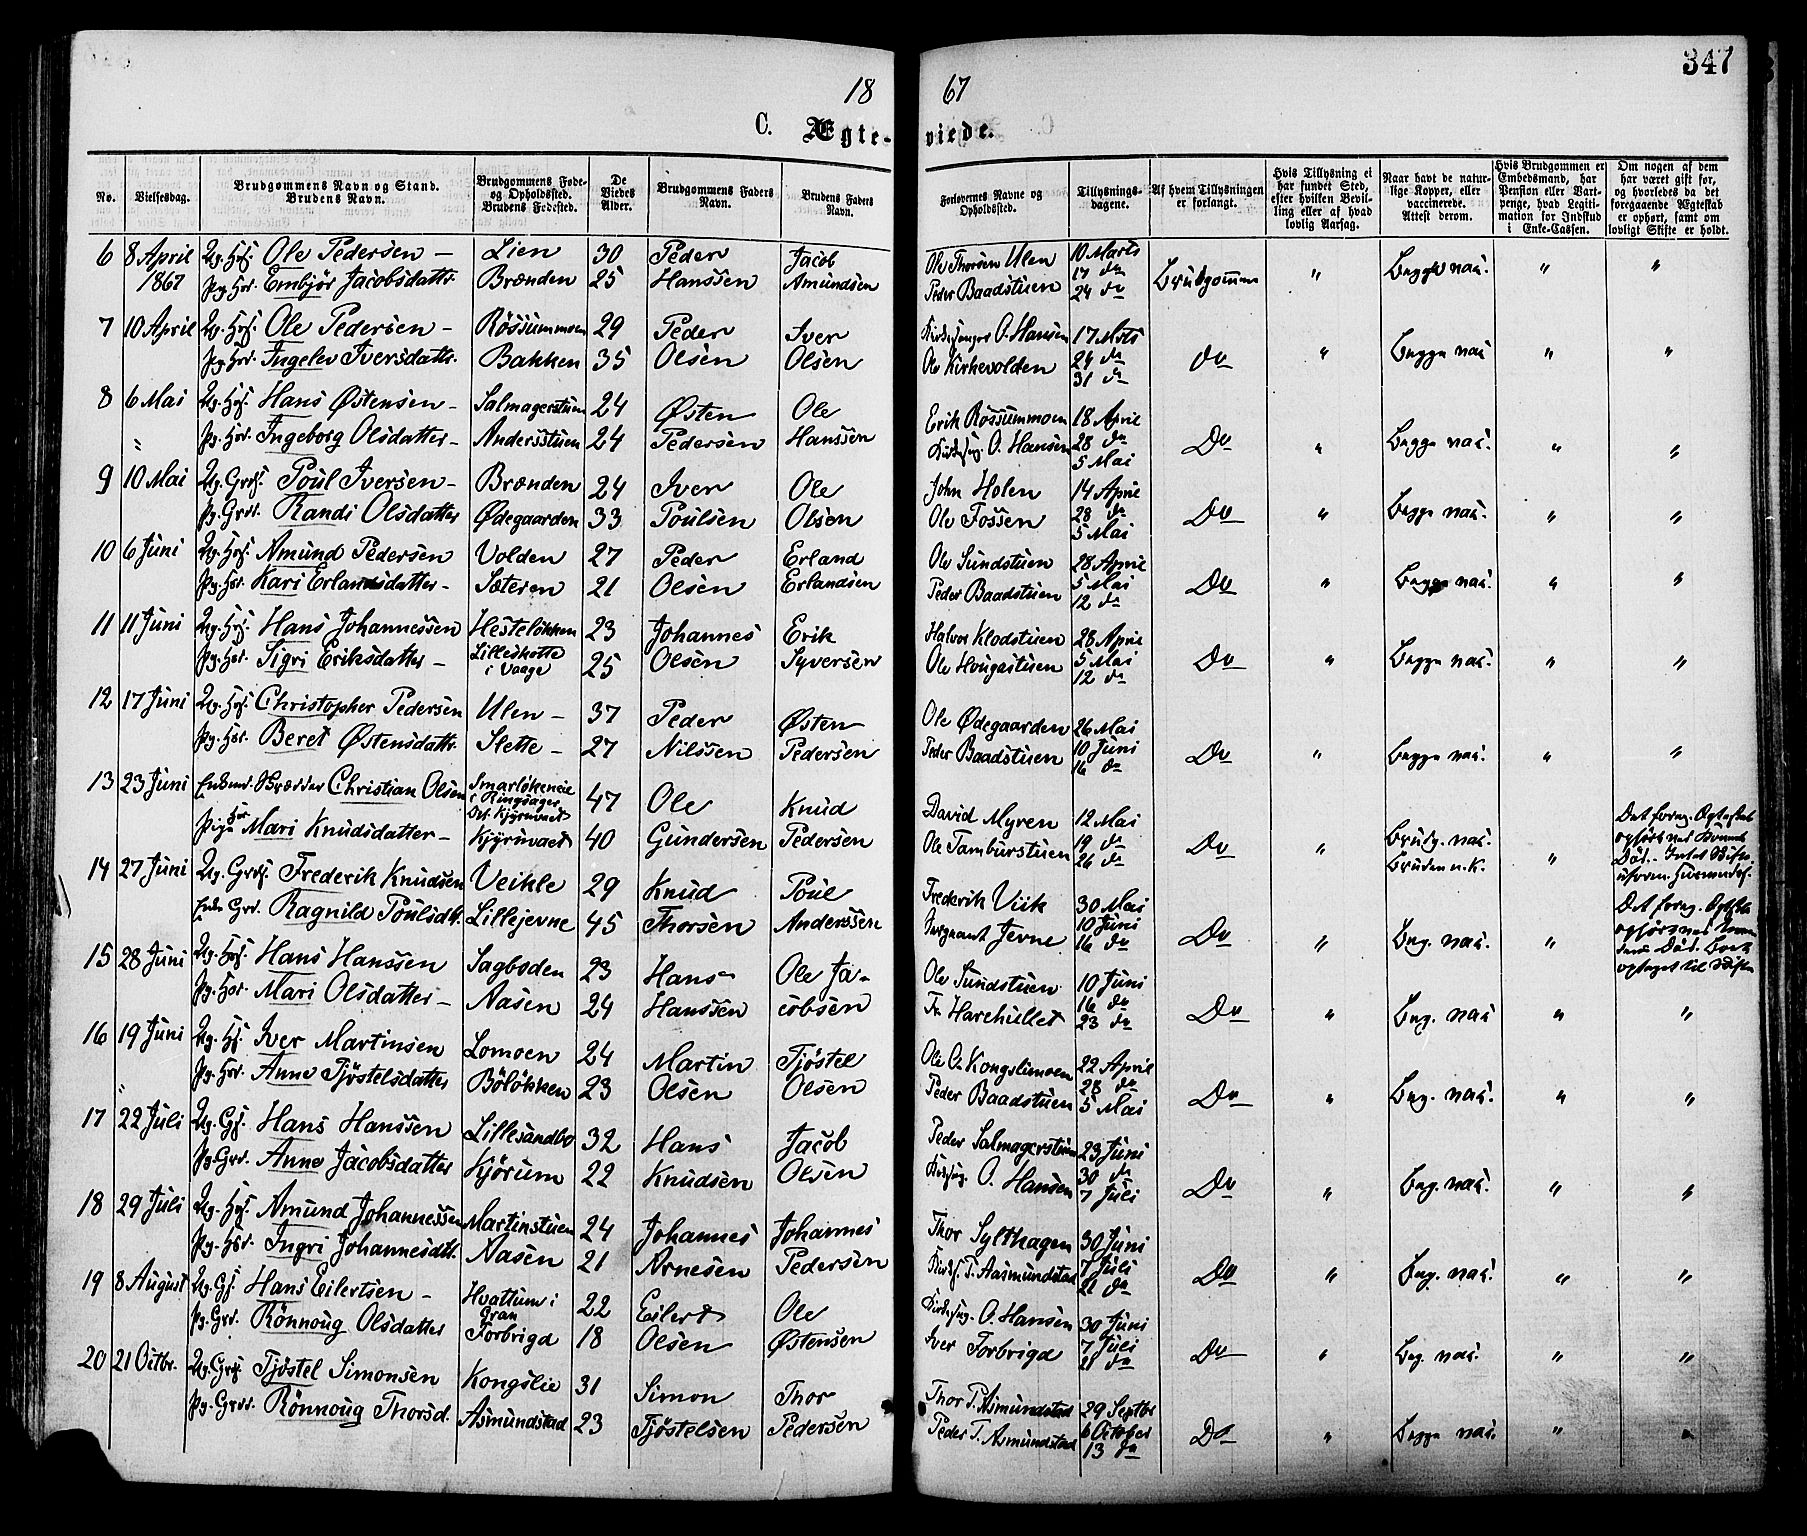 18 67
347
C. Ægte-viede.
No.
Vielsesdag.
Brudgommens Navn og Stand.
Brudens Navn.
Brudgommens Føde-
og Opholdssted.
Brudens Fødested.
De
Viedes
Alder.
Brudgommens Faders
Navn.
Brudens Faders
Navn.
Forlovernes Navne og
Opholdssted.
Tillysnings-
dagene.
Af hvem Tillysningen
er forlangt.
Hvis Tillysning ei
har fundet Sted,
efter hvilken Bevil-
ling eller af hvad
lovlig Aarsag.
Naar havt de natur-
lige Kopper, eller
vaccinerede.
Attest derom.
Hvis Brudgommen er
Embedsmand, har
Pension eller Vart-
penge, hvad Legiti-
mation for Indskud
i Enke-Cassen.
Om nogen af dem
har været gift før,
og hvorledes da det
foregaaende Ægteskab
er ophørt, samt om
lovligt Skifte er holdt.
6 8 April Ug. Ole Pedersen – Lien 30 Peder Jacob Ole Thorsen Ulen 10 Marts
1867 Pg. Embjør Jacobsdattr. Brænden 25 Hanssen Amundsen Peder Baadstuen 17 do 24 do Brudgommen " Begge nat. " "
7 10 April Ug. Ole Pedersen – Røssummoen 29 Peder Iver Kirkesanger O. Hansen 17 Mrts
Pg. Ingelev Iversdattr. Bakken 35 Olsen Olsen Ole Kirkevolden 24 do 31 do do " Begge nat. " "
8 6 Mai Ug. Hans Østensen – Salmagerstuen 24 Østen Ole Erik Røssummoen 18 April
" Pg. Ingeborg Olsdatter – Andersstuen 24 Pedersen Hanssen Kirkesng. O. Hansen 28 do 5 Mai Do " Begge nat. " "
9 10 Mai Ug. Poul Iversen – Brænden 24 Iver Ole John Holen 14 April
Pg. Randi Olsdatter Ødegaarden 33 Poulsen Olsen Ole Fossen 28 do 5 Mai Do " Begge nat. " "
10 6 Juni Ug. Amund Pedersen Volden 27 Peder Erland Ole Sundstuen 28 April
Pg. Kari Erlandsdatter – Sæteren 21 Olsen Erlandsen Peder Baadstuen 5 Mai 12 do Do " Begge nat. " "
11 11 Juni Ug. Hans Johannessen Hesteløkken 23 Johannes Erik Halvor Klodstuen 28 April
Pg. Sigri Eriksdatter – Lilleskotte i Vaage 25 Olsen Syversen Ole Hougastuen 5 Mai 12 do Do " Begge nat. " "
12 17 Juni Ug. Christopher Pedersen Ulen – 37 Peder Østen Ole Ødegaarden 26 Mai
Pg. Beret Østensdattr. Slette – 27 Nilssen Pedersen Peder Baadstuen 10 Juni 16 do Do " Begge nat. " "
13 23 Juni Christian Olsen Smørløkeneie i Ringsager 47 Ole Knud David Myren 12 Mai
Pige Mari Knudsdatter – Kjyruvaet 40 Gundersen Pedersen Ole Tamburstuen 19 do 26 do Do " Brudg. nat. Bruden n.k. "
14 27 Juni Ug. Frederik Knudsen Veikle 29 Knud Poul Frederik Viik 30 Mai
Ragnild Poulsdt. Lillejevne 45 Thorsen Anderssen Sergeant Jevne 10 Juni 16 do Do " Beg. nat. "
15 28 Juni Ug. Hans Hanssen Sagboden 23 Hans Ole Ja- Ole Sundstuen 10 Juni
Pg. Mari Olsdatter – Aasen 24 Hanssen cobsen Fr. Harehullet 16 do 23 do Do " Beg. nat. " "
16 19 Juni Ug. Iver Martinsen Lomoen 24 Martin Tjøstel Ole O. Kongslimoen 22 April
" Pg. Anne Tjøstelsdatter Bøløkken 23 Olsen Olsen Peder Baadstuen 28 do 5 Mai Do " Beg. nat. " "
17 22 Juli Ug. Hans Hanssen Lillesandbo 32 Hans Jacob Peder Salmagerstuen 23 Juni
Pg. Anne Jacobsdatter Kjørum 22 Knudsen Olsen Kirkesng. O. Hansen 30 do 7 Juli Do " Beg. nat. " "
18 29 Juli Ug. Amund Johannessen Martinstuen 24 Johannes Johannes Thor Sylthagen 30 Juni
Pg. Ingri Johannesdt. Aasen 21 Arnesen Pedersen Kirks. T. Aasmundstad 7 Juli 21 do Do " Beg. nat. " "
19 8 August Ug. Hans Eilertsen – Hvattum i Gran 22 Eilert Ole Kirkesng. O. Hansen 30 Juni
Pg. Rønnoug Olsdatter Forbrigd 18 Olsen Østensen Iver Forbrigd 7 Juli 21 do Do " Beg. nat. " "
20 21 Octbr. Ug. Tjøstel Simonsen Kongslie 31 Simon Thor Thor T. Asmundstad 29 Septbr
Pg. Rønnoug Thorsd. Asmundstad 23 Tjøstelsen Pedersen Peder T. Asmundstad 6 October 13 do Do " Begge nat. " "